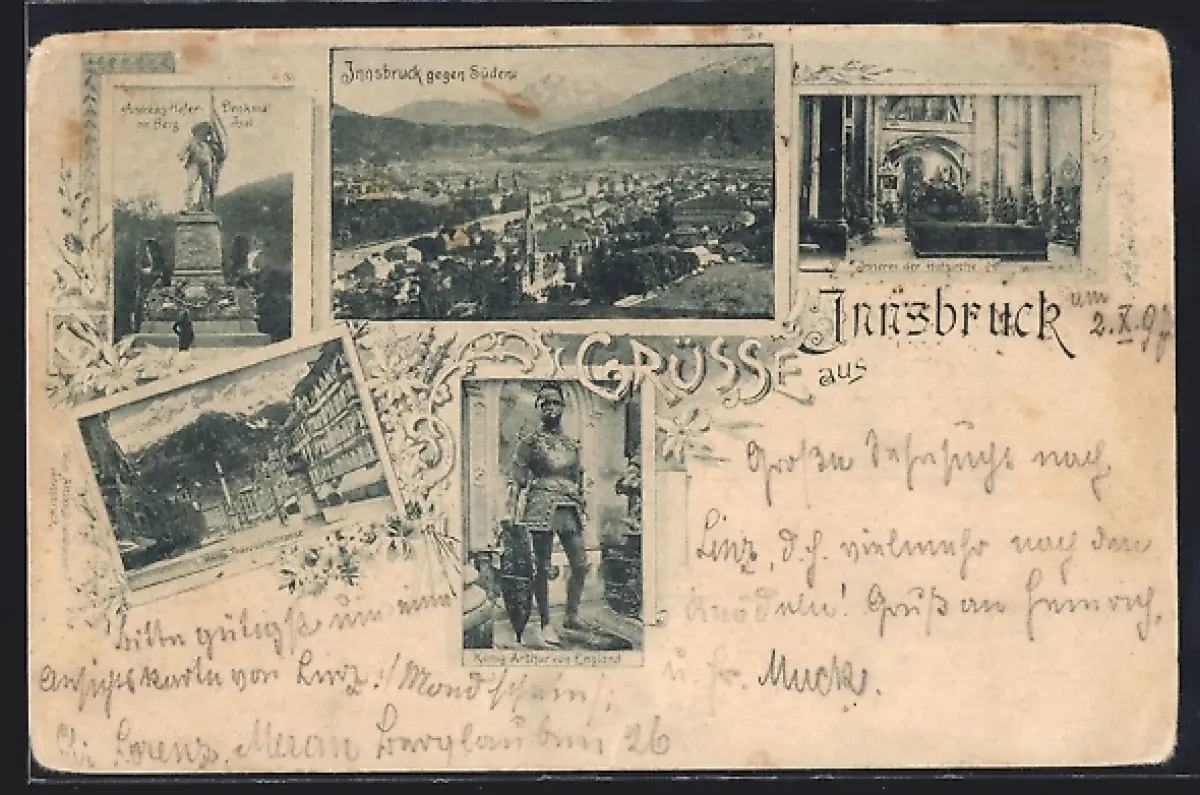 Andreas Hofer- Denkmal
am Berg Isel
Innsbruck gegen Süden.
Inneres der Hofkirche
GRÜSSE
aus
Innsbruck
am
2. X. 97
Theresienstrasse
König Arthur von England
Große Sehnsucht nach
Linz, d. h. vielmehr nach den
Knödeln! Gruß an Heinrich,
u. Fr. Muck.
Bitte gütigst um eine
Ansichtskarte von Linz: /Mondschein/:
Lorenz, Meran Berglauben 26